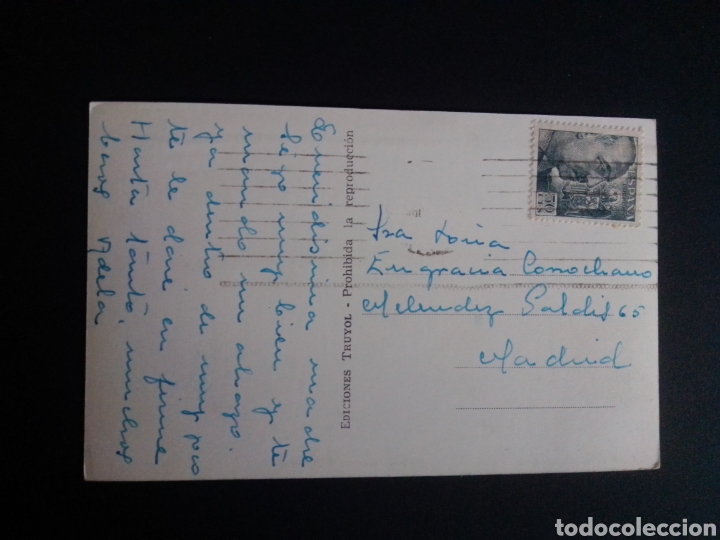 Queridisima madre
sigo muy bien y te
mando un abrazo.
ya dentro de muy poco
te le daré en firme
Hasta tanto, muchos
besos Adela
EDICIONES TRUYOL - Prohibida la reproducción
Sra Doña
Engracia Conochano
Melendez Valdés 65
Madrid
todocoleccion